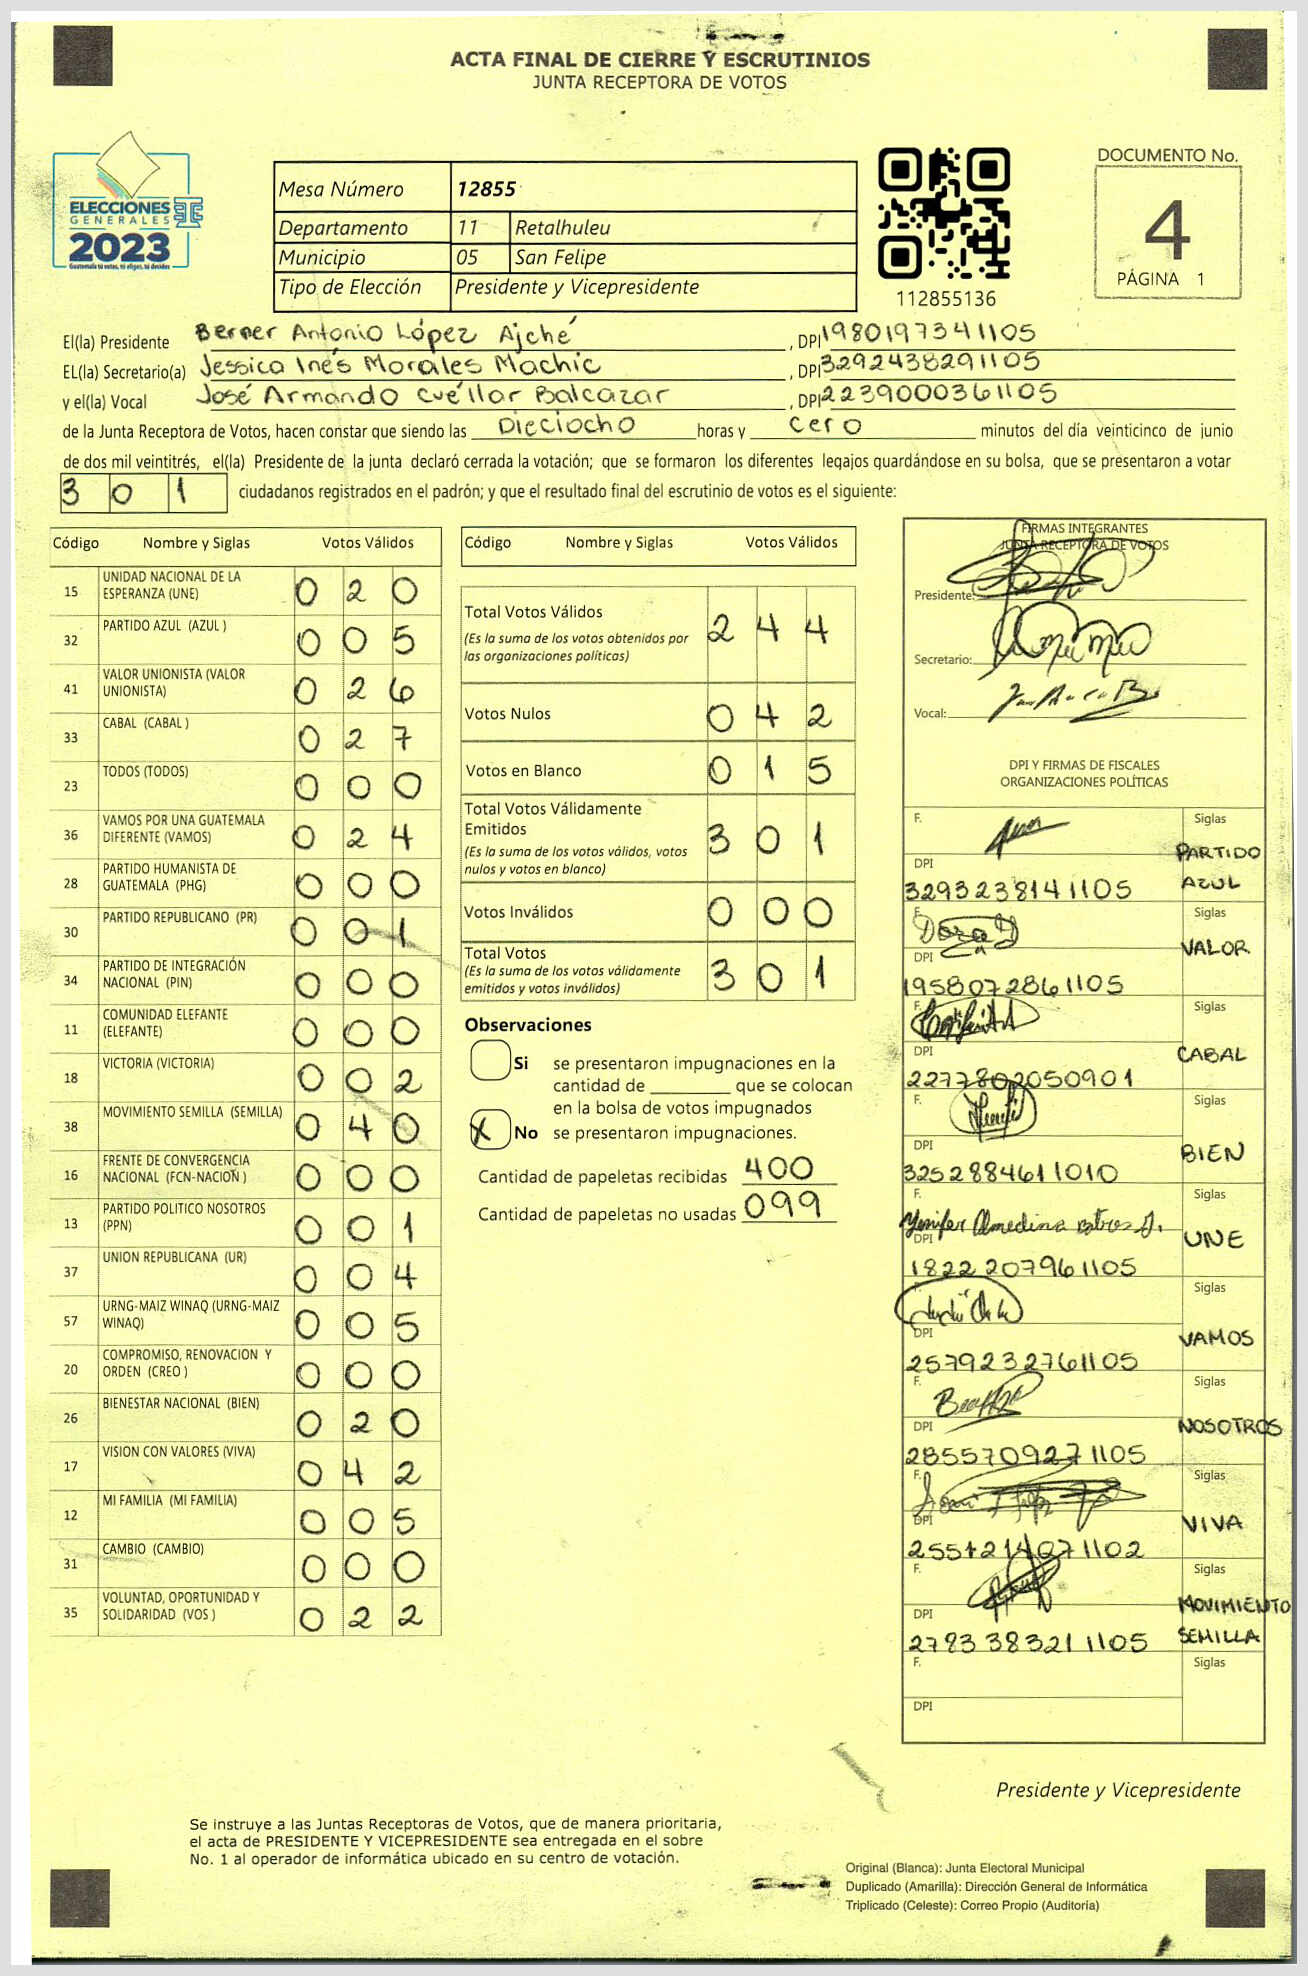 ACTA FINAL DE CIERRE Y ESCRUTINIOS
JUNTA RECEPTORA DE VOTOS
ELECCIONES
GENERALES
2023
Guatemala tú votas, tú eliges, tú decides
Mesa Número 12855
Departamento 11 Retalhuleu
Municipio 05 San Felipe
Tipo de Elección Presidente y Vicepresidente
112855136
DOCUMENTO No.
4
PÁGINA 1
El(la) Presidente Berner Antonio López Ajché, DPI 1980197341105
EL(la) Secretario(a) Jessica Inés Morales Machic, DPI 3292438291105
y el(la) Vocal José Armando Cuéllar Balcazar, DPI 2239000361105
de la Junta Receptora de Votos, hacen constar que siendo las Dieciocho horas y cero minutos del día veinticinco de junio
de dos mil veintitrés, el(la) Presidente de la junta declaró cerrada la votación; que se formaron los diferentes legajos guardándose en su bolsa, que se presentaron a votar
301 ciudadanos registrados en el padrón; y que el resultado final del escrutinio de votos es el siguiente:
Código Nombre y Siglas Votos Válidos
15 UNIDAD NACIONAL DE LA ESPERANZA (UNE) 020
32 PARTIDO AZUL (AZUL ) 005
41 VALOR UNIONISTA (VALOR UNIONISTA) 026
33 CABAL (CABAL ) 027
23 TODOS (TODOS) 000
36 VAMOS POR UNA GUATEMALA DIFERENTE (VAMOS) 024
28 PARTIDO HUMANISTA DE GUATEMALA (PHG) 000
30 PARTIDO REPUBLICANO (PR) 001
34 PARTIDO DE INTEGRACIÓN NACIONAL (PIN) 000
11 COMUNIDAD ELEFANTE (ELEFANTE) 000
18 VICTORIA (VICTORIA) 002
38 MOVIMIENTO SEMILLA (SEMILLA) 040
16 FRENTE DE CONVERGENCIA NACIONAL (FCN-NACION ) 000
13 PARTIDO POLITICO NOSOTROS (PPN) 001
37 UNION REPUBLICANA (UR) 004
57 URNG-MAIZ WINAQ (URNG-MAIZ WINAQ) 005
20 COMPROMISO, RENOVACION Y ORDEN (CREO ) 000
26 BIENESTAR NACIONAL (BIEN) 020
17 VISION CON VALORES (VIVA) 042
12 MI FAMILIA (MI FAMILIA) 005
31 CAMBIO (CAMBIO) 000
35 VOLUNTAD, OPORTUNIDAD Y SOLIDARIDAD (VOS ) 022
Código Nombre y Siglas Votos Válidos
Total Votos Válidos 244
(Es la suma de los votos obtenidos por
las organizaciones políticas)
Votos Nulos 042
Votos en Blanco 015
Total Votos Válidamente
Emitidos 301
(Es la suma de los votos válidos, votos
nulos y votos en blanco)
Votos Inválidos 000
Total Votos 301
(Es la suma de los votos válidamente
emitidos y votos inválidos)
Observaciones
Si se presentaron impugnaciones en la
cantidad de ________ que se colocan
en la bolsa de votos impugnados
X No se presentaron impugnaciones.
Cantidad de papeletas recibidas 400
Cantidad de papeletas no usadas 099
FIRMAS INTEGRANTES
JUNTA RECEPTORA DE VOTOS
Presidente:
Secretario:
Vocal:
DPI Y FIRMAS DE FISCALES
ORGANIZACIONES POLÍTICAS
F. Siglas
PARTIDO AZUL
DPI
3293238141105
F. Siglas
VALOR
DPI
1958072861105
F. Siglas
CABAL
DPI
2277802050901
F. Siglas
BIEN
DPI
3252884611010
F. Siglas
Yenifer Almedina
UNE
DPI
1822207961105
Siglas
VAMOS
DPI
2579232761105
F. Siglas
NOSOTROS
DPI
2855709271105
F. Siglas
VIVA
DPI
F. Siglas
MOVIMIENTO SEMILLA
DPI
2783383211105
F. Siglas
DPI
Presidente y Vicepresidente
Se instruye a las Juntas Receptoras de Votos, que de manera prioritaria,
el acta de PRESIDENTE Y VICEPRESIDENTE sea entregada en el sobre
No. 1 al operador de informática ubicado en su centro de votación.
Original (Blanca): Junta Electoral Municipal
Duplicado (Amarilla): Dirección General de Informática
Triplicado (Celeste): Correo Propio (Auditoría)